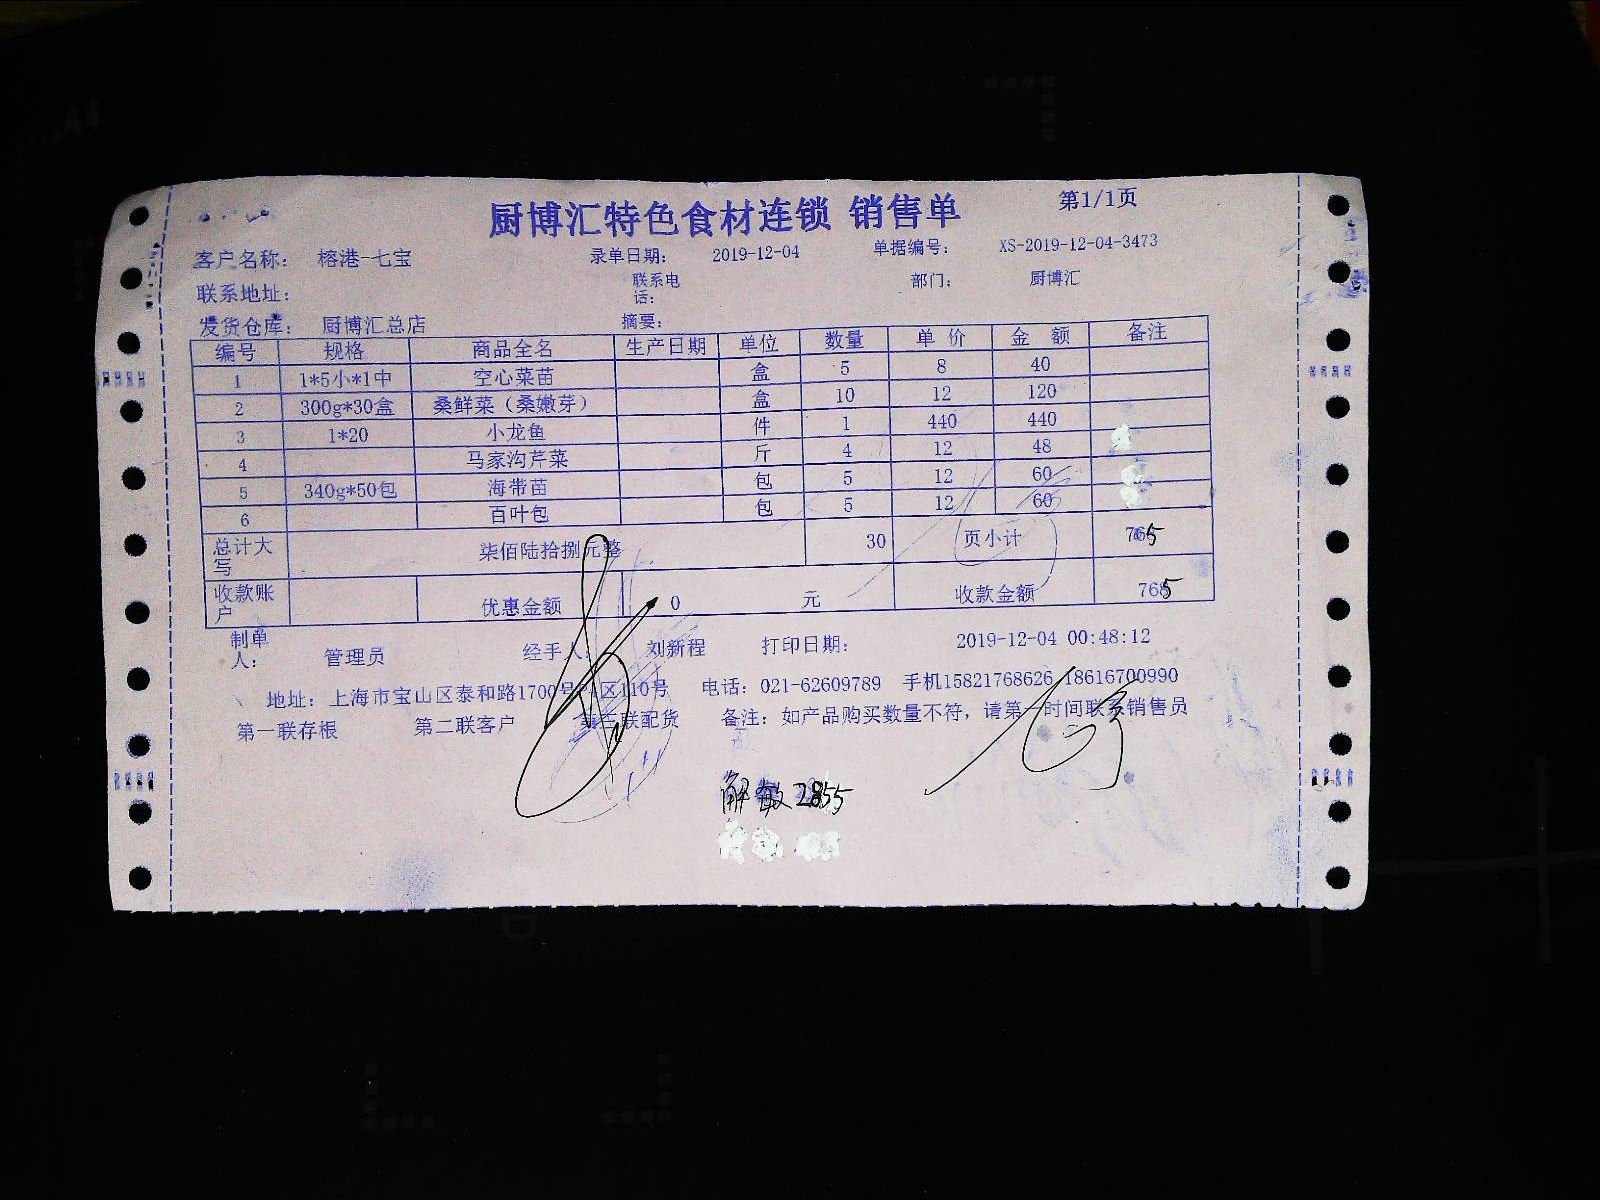 厨博汇特色食材连锁 销售单 第1/1页
客户名称: 榕港-七宝 录单日期: 2019-12-04 单据编号: XS-2019-12-04-3473
联系地址: 联系电话: 部门: 厨博汇
发货仓库: 厨博汇总店 摘要:
编号 规格 商品全名 生产日期 单位 数量 单价 金额 备注
1 1*5小*1中 空心菜苗 盒 5 8 40
2 300g*30盒 桑鲜菜（桑嫩芽） 盒 10 12 120
3 1*20 小龙鱼 件 1 440 440
4 马家沟芹菜 斤 4 12 48
5 340g*50包 海带苗 包 5 12 60
6 百叶包 包 5 12 60
总计大写 柒佰陆拾捌元整 30 页小计 765
收款账户 优惠金额 0 元 收款金额 765
制单人: 管理员 经手人: 刘新程 打印日期: 2019-12-04 00:48:12
地址: 上海市宝山区泰和路1700号 区110号 电话: 021-62609789 手机15821768626 18616700990
第一联存根 第二联客户 第三联配货 备注: 如产品购买数量不符，请第一时间联系销售员
2855